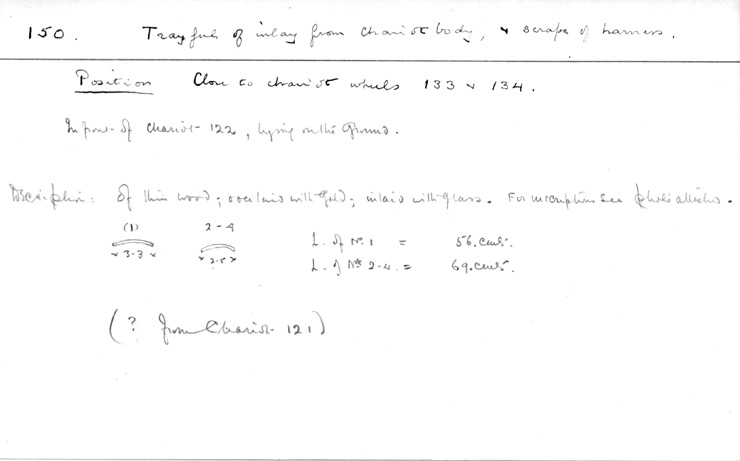 150. Tray full of inlay from chariot body, & scraps of harness.
Position Close to chariot wheels 133 & 134.
In front of chariot 122, lying on the ground.
Description: Of thin wood; overlaid with gold; inlaid with glass. For inscriptions see photo attached.
(1) 2-4
x 3.3 x x 2.5 x L. of No. 1 = 56. cms.
L. of Nos 2-4. = 69. cms.
(? from Chariot 121)